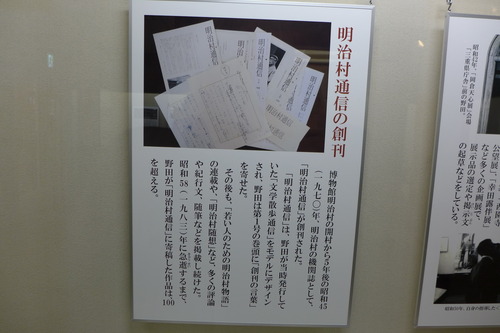 明治村通信の創刊
博物館明治村の開村から5年後の昭和45
(一九七〇)年、明治村の機関誌として、
「明治村通信」が創刊された。
「明治村通信」は、野田が当時発行して
いた「文学散歩通信」をモデルにデザイン
され、野田は第1号の巻頭に「創刊の言葉」
を寄せた。
その後も、「若い人のための明治村物語」
の連載や、「明治村随想」など、多くの評論
や紀行文、随筆などを掲載し続けた。
昭和58(一九八三)年に急逝するまで、
野田が「明治村通信」に寄稿した作品は、100
を超える。
明治村通信
明治村通信
明治村通信
昭和52年、「岡倉天心展」会場
「三重県庁舎」前の野田。
など多くの企画展で、
展示品の選定や掲示文
の起草などをしている。